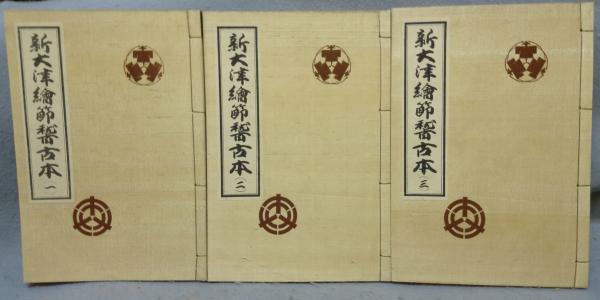 新大津繪節稽古本 一
新大津繪節稽古本 (二)
新大津繪節稽古本 (三)